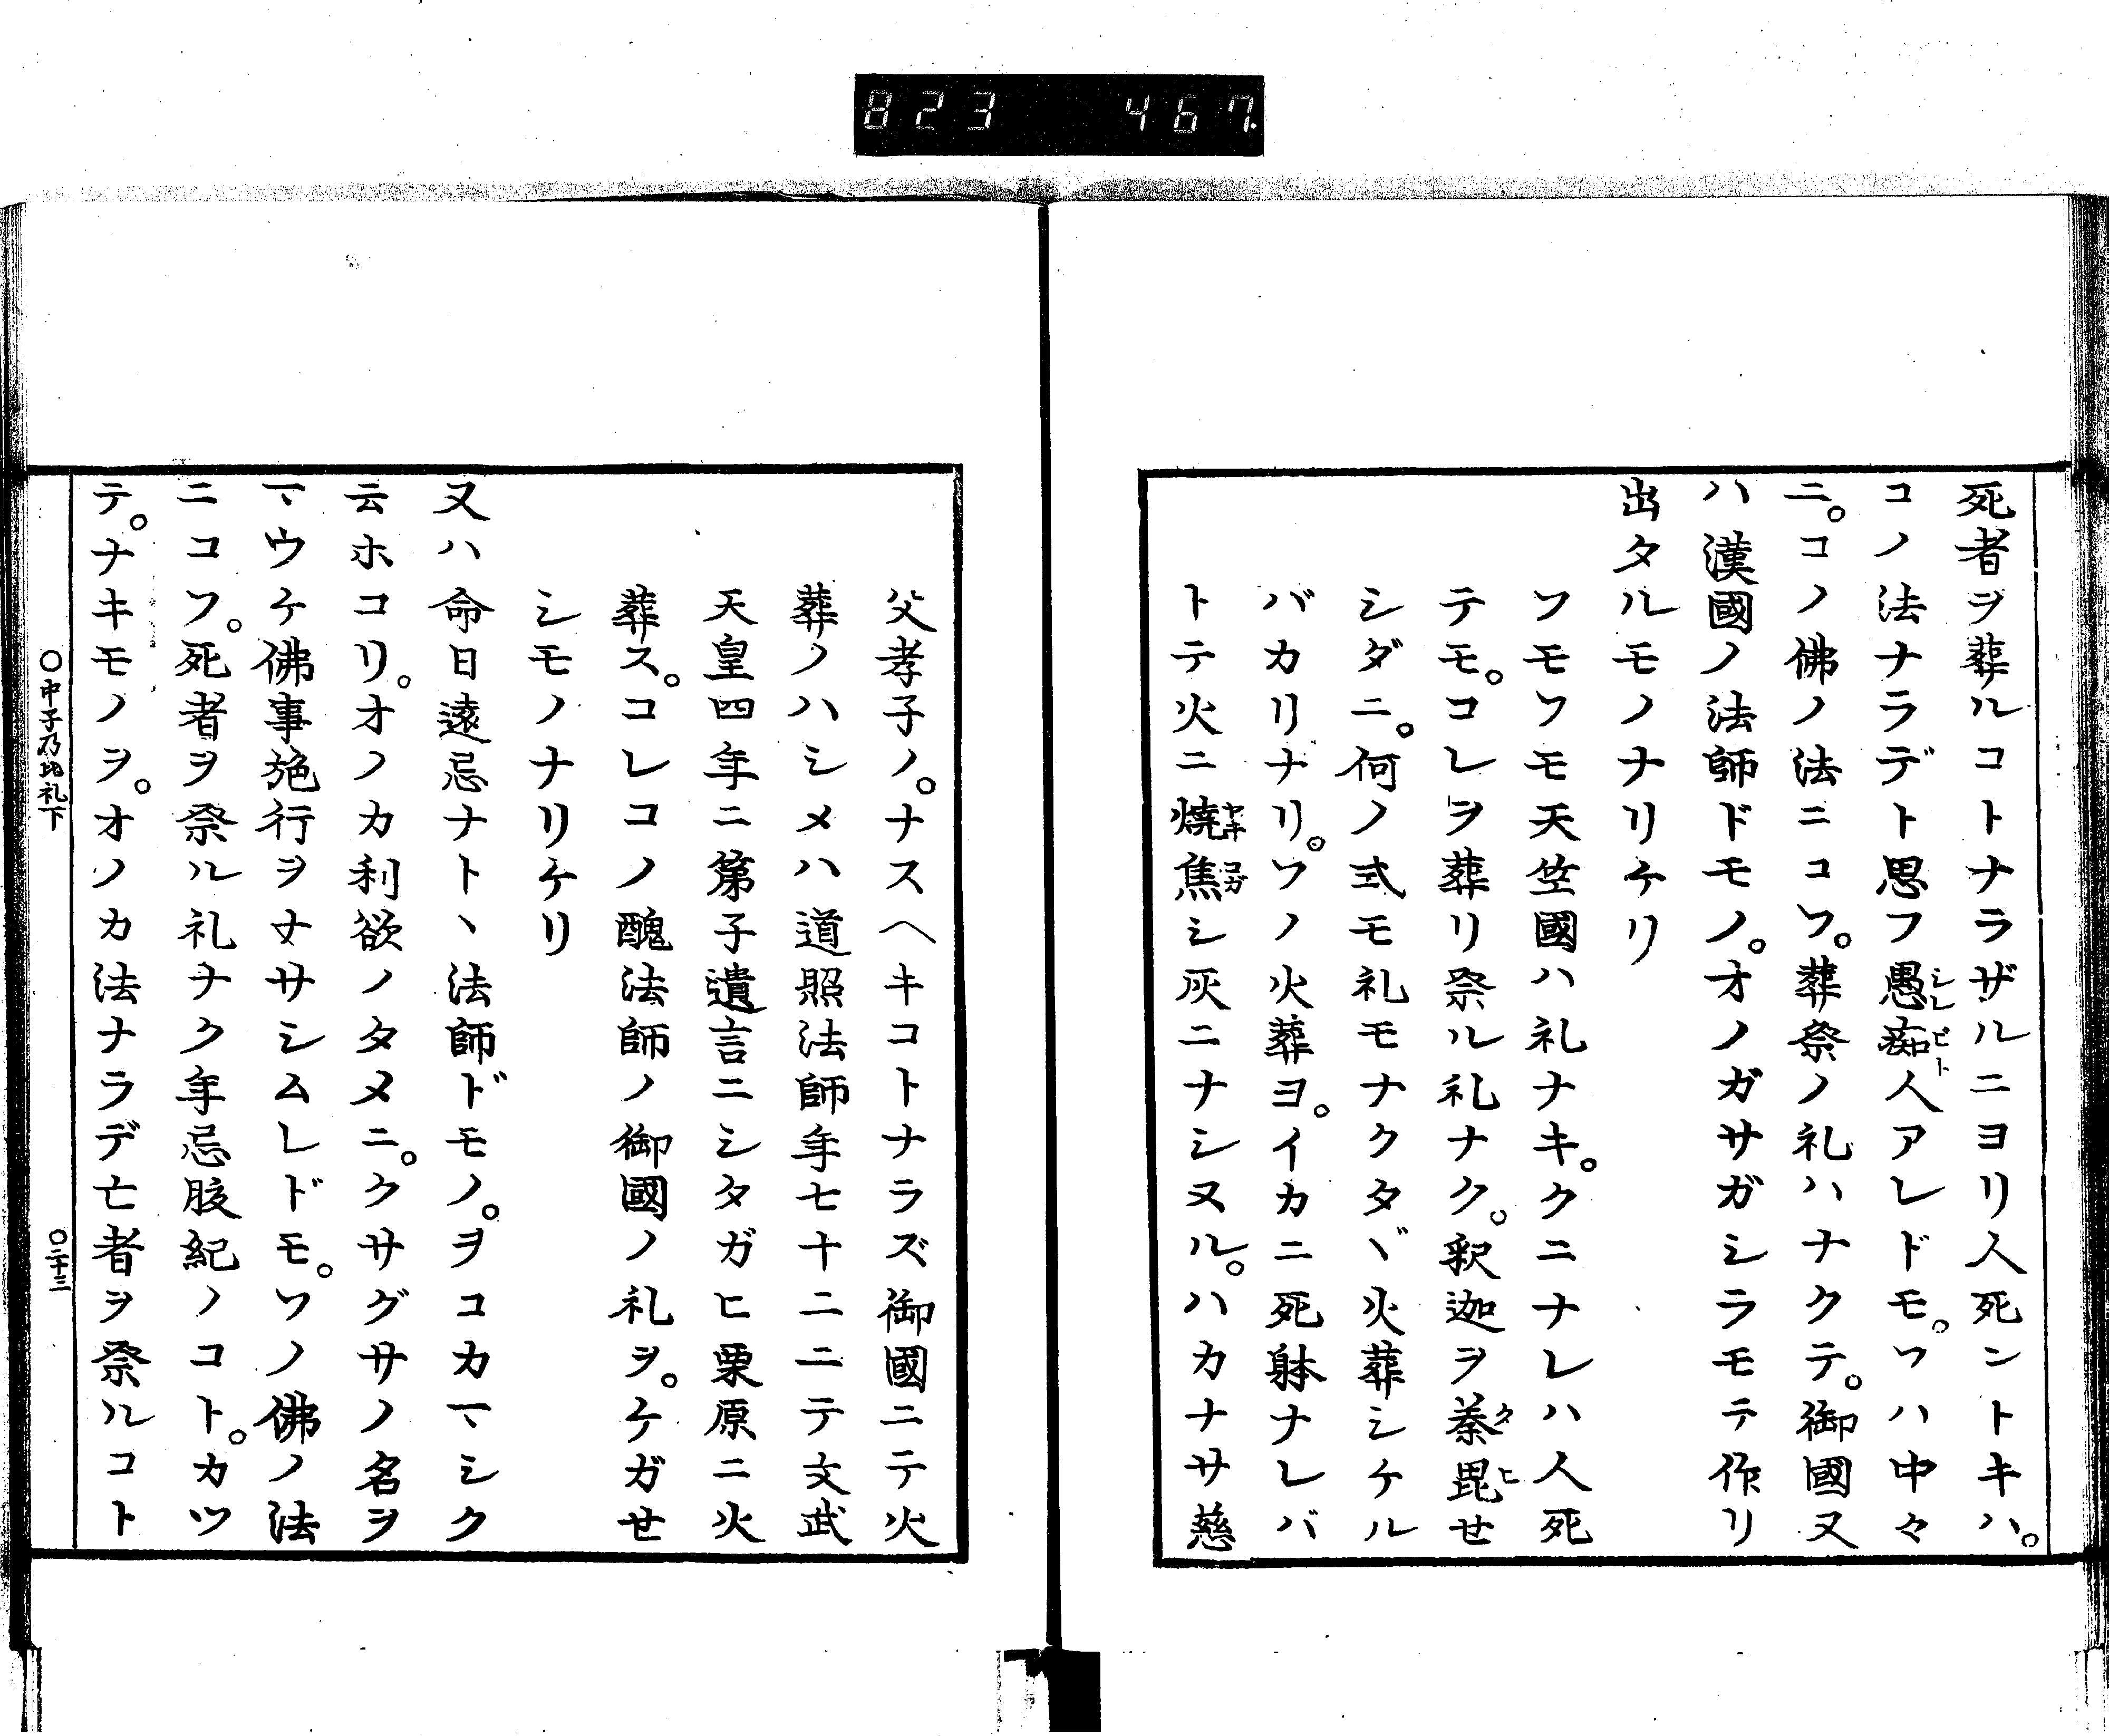 823 467.
死者ヲ葬ルコトナラザルニヨリ人死ントキハ。
コノ法ナラデト思フ愚痴人アレドモ。ソハ中々
ニ。コノ佛ノ法ニコソ。葬祭ノ礼ハナクテ。御國又
ハ漢國ノ法師ドモノ。オノガサガシラモテ作リ
出タルモノナリケリ
ソモソモ天竺國ハ礼ナキ。クニナレハ人死
テモ。コレヲ葬リ祭ル礼ナク。釈迦ヲ荼毘セ
シダニ。何ノ式モ礼モナクタヾ火葬シケル
バカリナリ。ソノ火葬ヨ。イカニ死躰ナレバ
トテ火ニ燒焦シ灰ニナシヌル。ハカナサ慈
父孝子ノ。ナスヘキコトナラズ御國ニテ火
葬ノハシメハ道照法師年七十二ニテ文武
天皇四年ニ第子遺言ニシタガヒ栗原ニ火
葬ス。コレコノ醜法師ノ御國ノ礼ヲ。ケガセ
シモノナリケリ
又ハ命日遠忌ナト丶法師ドモノ。ヲコカマシク
云ホコリ。オノカ利欲ノタメニ。クサグサノ名ヲ
マウケ佛事施行ヲナサシムレドモ。ソノ佛ノ法
ニコソ。死者ヲ祭ル礼ナク年忌胘紀ノコト。カツ
テ。ナキモノヲ。オノカ法ナラデ亡者ヲ祭ルコト
〇中子乃比礼下 〇二十三